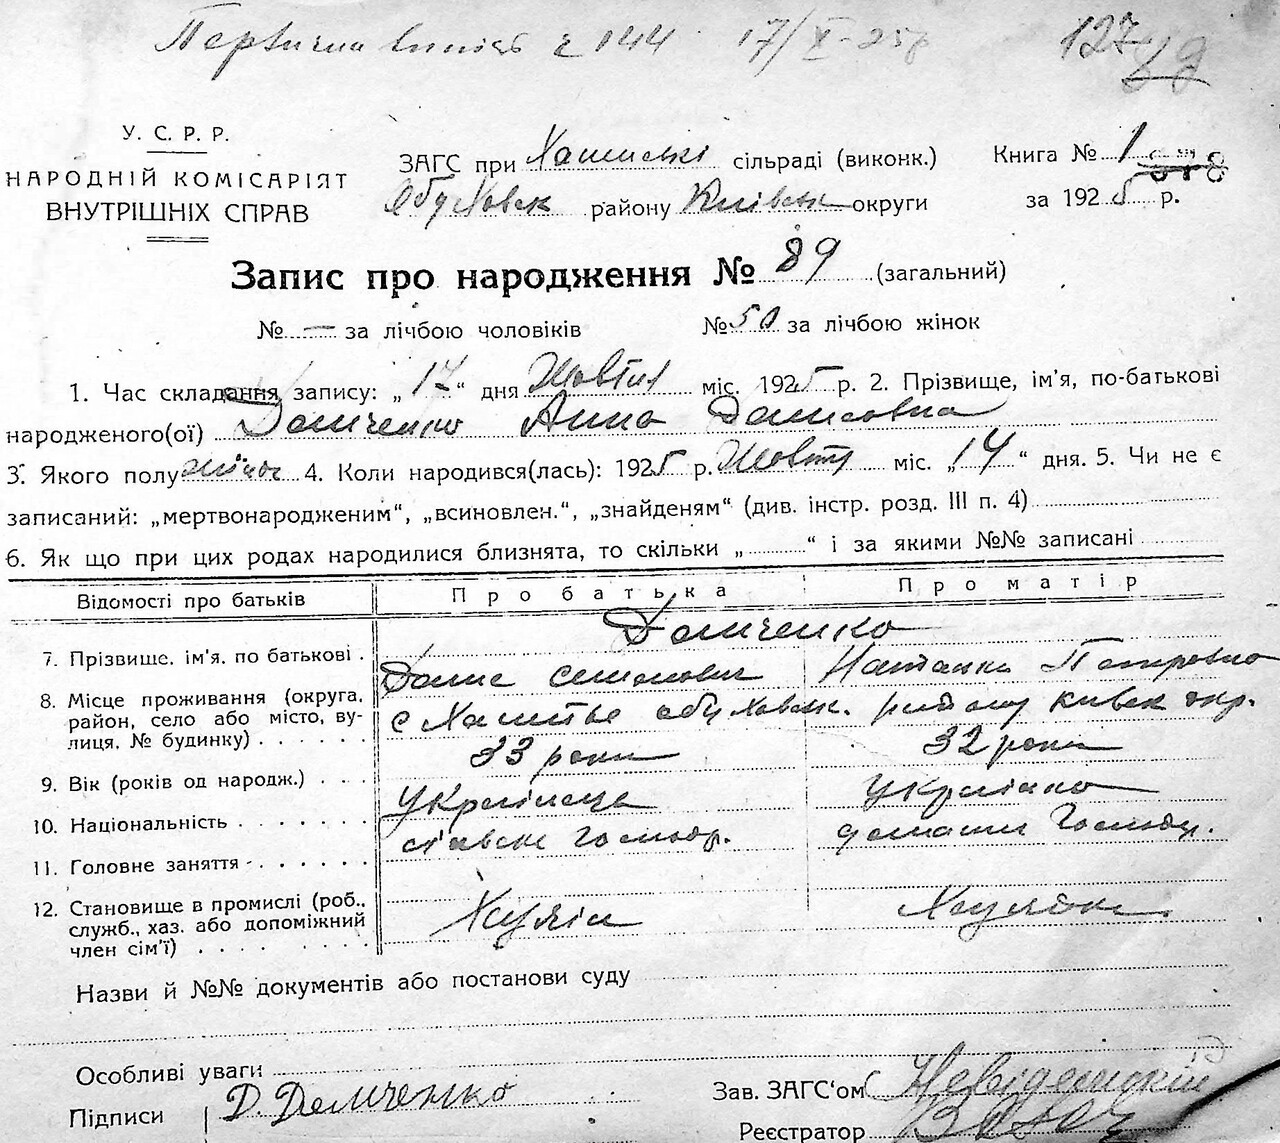 Первична виписъ ч 144 17/X-25р 127
49
У. С. Р. Р.
НАРОДНІЙ КОМІСАРІЯТ
ВНУТРІШНІХ СПРАВ
ЗАГС при сільраді (виконк.) Книга № 1
Обуховск району Київськ округи за 1925 р.
Запис про народження № 89 (загальний)
№ — за лічбою чоловіків № 50 за лічбою жінок
1. Час складання запису: „17“ дня Жовтня міс. 1925 р. 2. Прізвище, ім'я, по-батькові
народженого(ої) Демченко Анна Денисовна
3. Якого полу жіноч 4. Коли народився(лась): 1925 р. Жовтня міс. „14“ дня. 5. Чи не є
записаний: „мертвонародженим“, „всиновлен.“, „знайденям“ (див. інстр. розд. III п. 4)
6. Як що при цих родах народилися близнята, то скільки „ “ і за якими №№ записані
Відомості про батьків Про батька Про матір
Демченко
7. Прізвище, ім'я, по батькові . Денис Семенович Наталка Петровна
8. Місце проживання (округа,
район, село або місто, ву-
лиця, № будинку) с Обуховськ. району Київск окр.
9. Вік (років од народж.) . . . 33 роки 32 роки
10. Національність Українець Українка
11. Головне заняття сільське Господ. домашнє Господ.
12. Становище в промислі (роб.,
служб., хаз. або допоміжний
член сім'ї) Хазяїн Хазяйка
Назви й №№ документів або постанови суду
Особливі уваги
Підписи Д. Демченко
Зав. ЗАГС'ом
Реєстратор